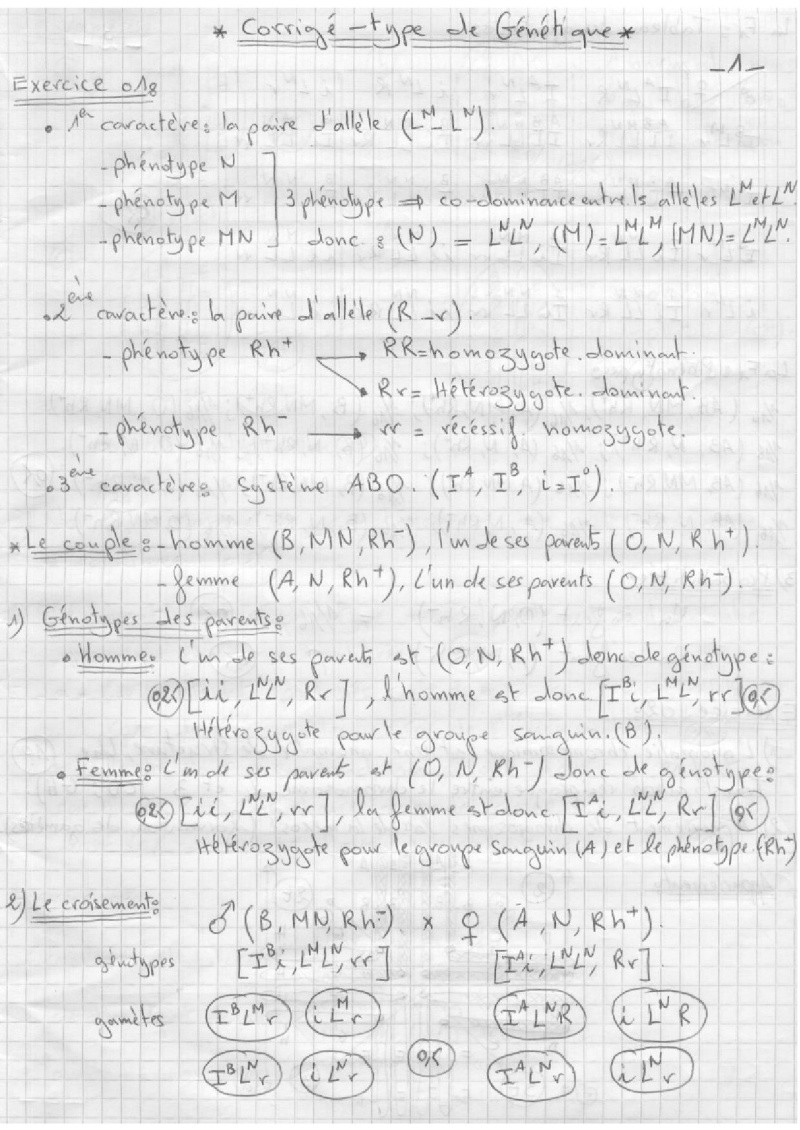 * Corrigé-type de Génétique *
-1-
Exercice 01:
• 1er caractère: la paire d'allèle (L^M - L^N).
- phénotype N
- phénotype M ] 3 phénotype ⇒ co-dominance entre ls allèles L^M et L^N.
- phénotype MN donc : (N) = L^N L^N, (M) = L^M L^M, (MN) = L^M L^N.
• 2ème caractère: la paire d'allèle (R - r).
- phénotype Rh+ → RR = homozygote. dominant.
→ Rr = Hétérozygote. dominant.
- phénotype Rh- → rr = récessif. homozygote.
• 3ème caractère: Système ABO. (I^A, I^B, i = I^o).
* Le couple : - homme (B, MN, Rh-), l'un de ses parents (O, N, Rh+).
- femme (A, N, Rh+), L'un de ses parents (O, N, Rh-).
1) Génotypes des parents:
• Homme: L'un de ses parents est (O, N, Rh+) donc de génotype :
0,25 [ii, L^N L^N, Rr], l'homme est donc [I^B i, L^M L^N, rr] 0,5
Hétérozygote pour le groupe sanguin. (B).
• Femme: L'un de ses parents est (O, N, Rh-) donc de génotype:
0,25 [ii, L^N L^N, rr], la femme est donc [I^A i, L^N L^N, Rr] 0,5
Hétérozygote pour le groupe sanguin (A) et le phénotype (Rh+)
2) Le croisement:
♂ (B, MN, Rh-) x ♀ (A, N, Rh+).
génotypes [I^B i, L^M L^N, rr] [I^A i, L^N L^N, Rr].
gamètes I^B L^M r i L^M r I^A L^N R i L^N R
I^B L^N r i L^N r 0,5 I^A L^N r i L^N r